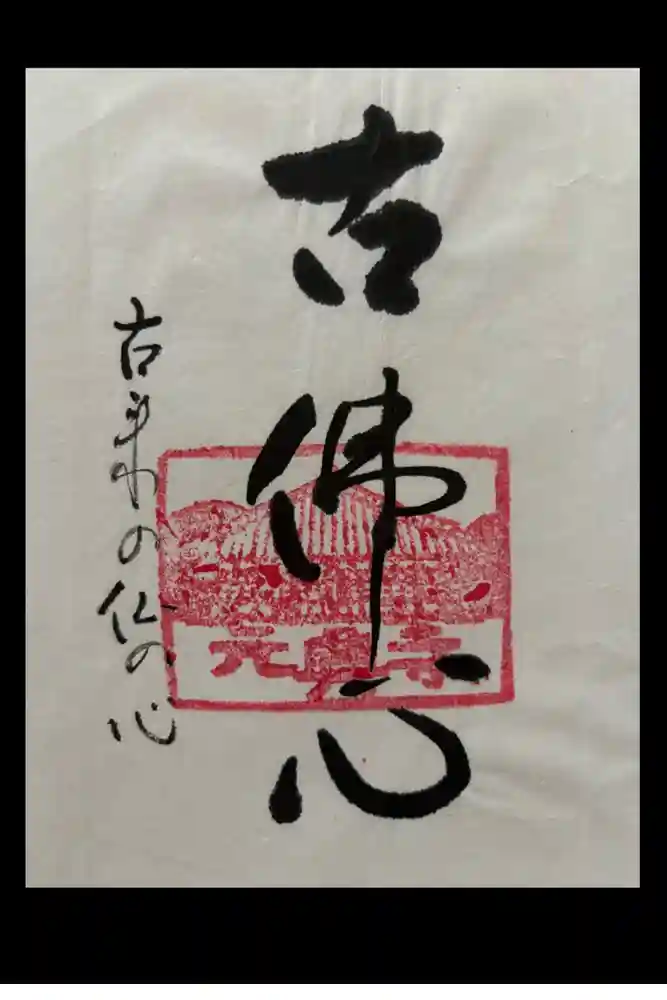 古佛心
古来の仏の心